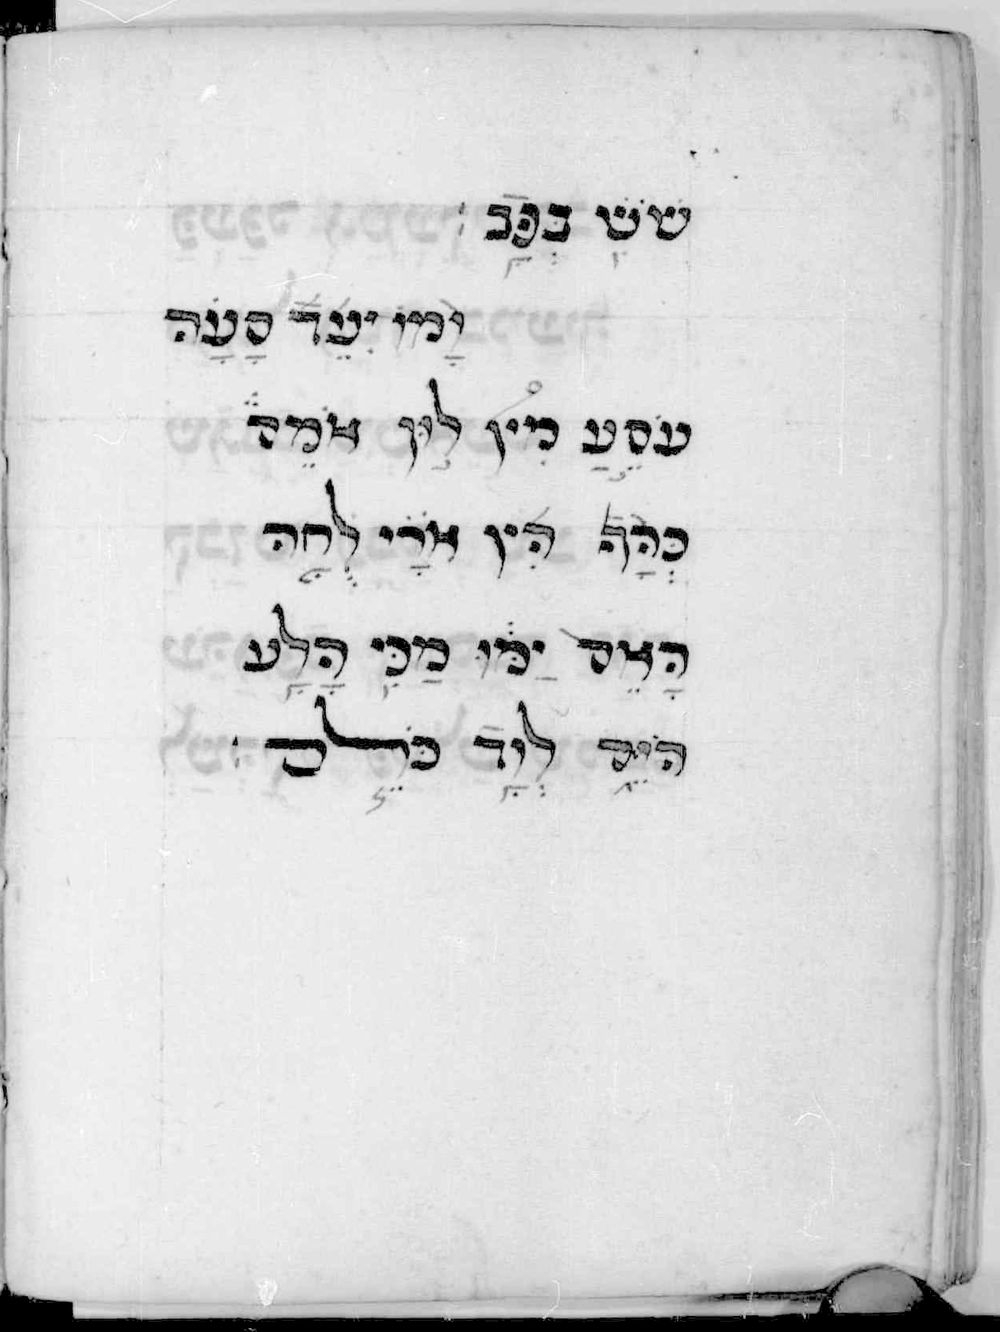 שש בכב
ימו יעד סעה
עסע מין לון אמד
כהף הין ארי לחה
האס ימו מכי הלע
היס לוד כל